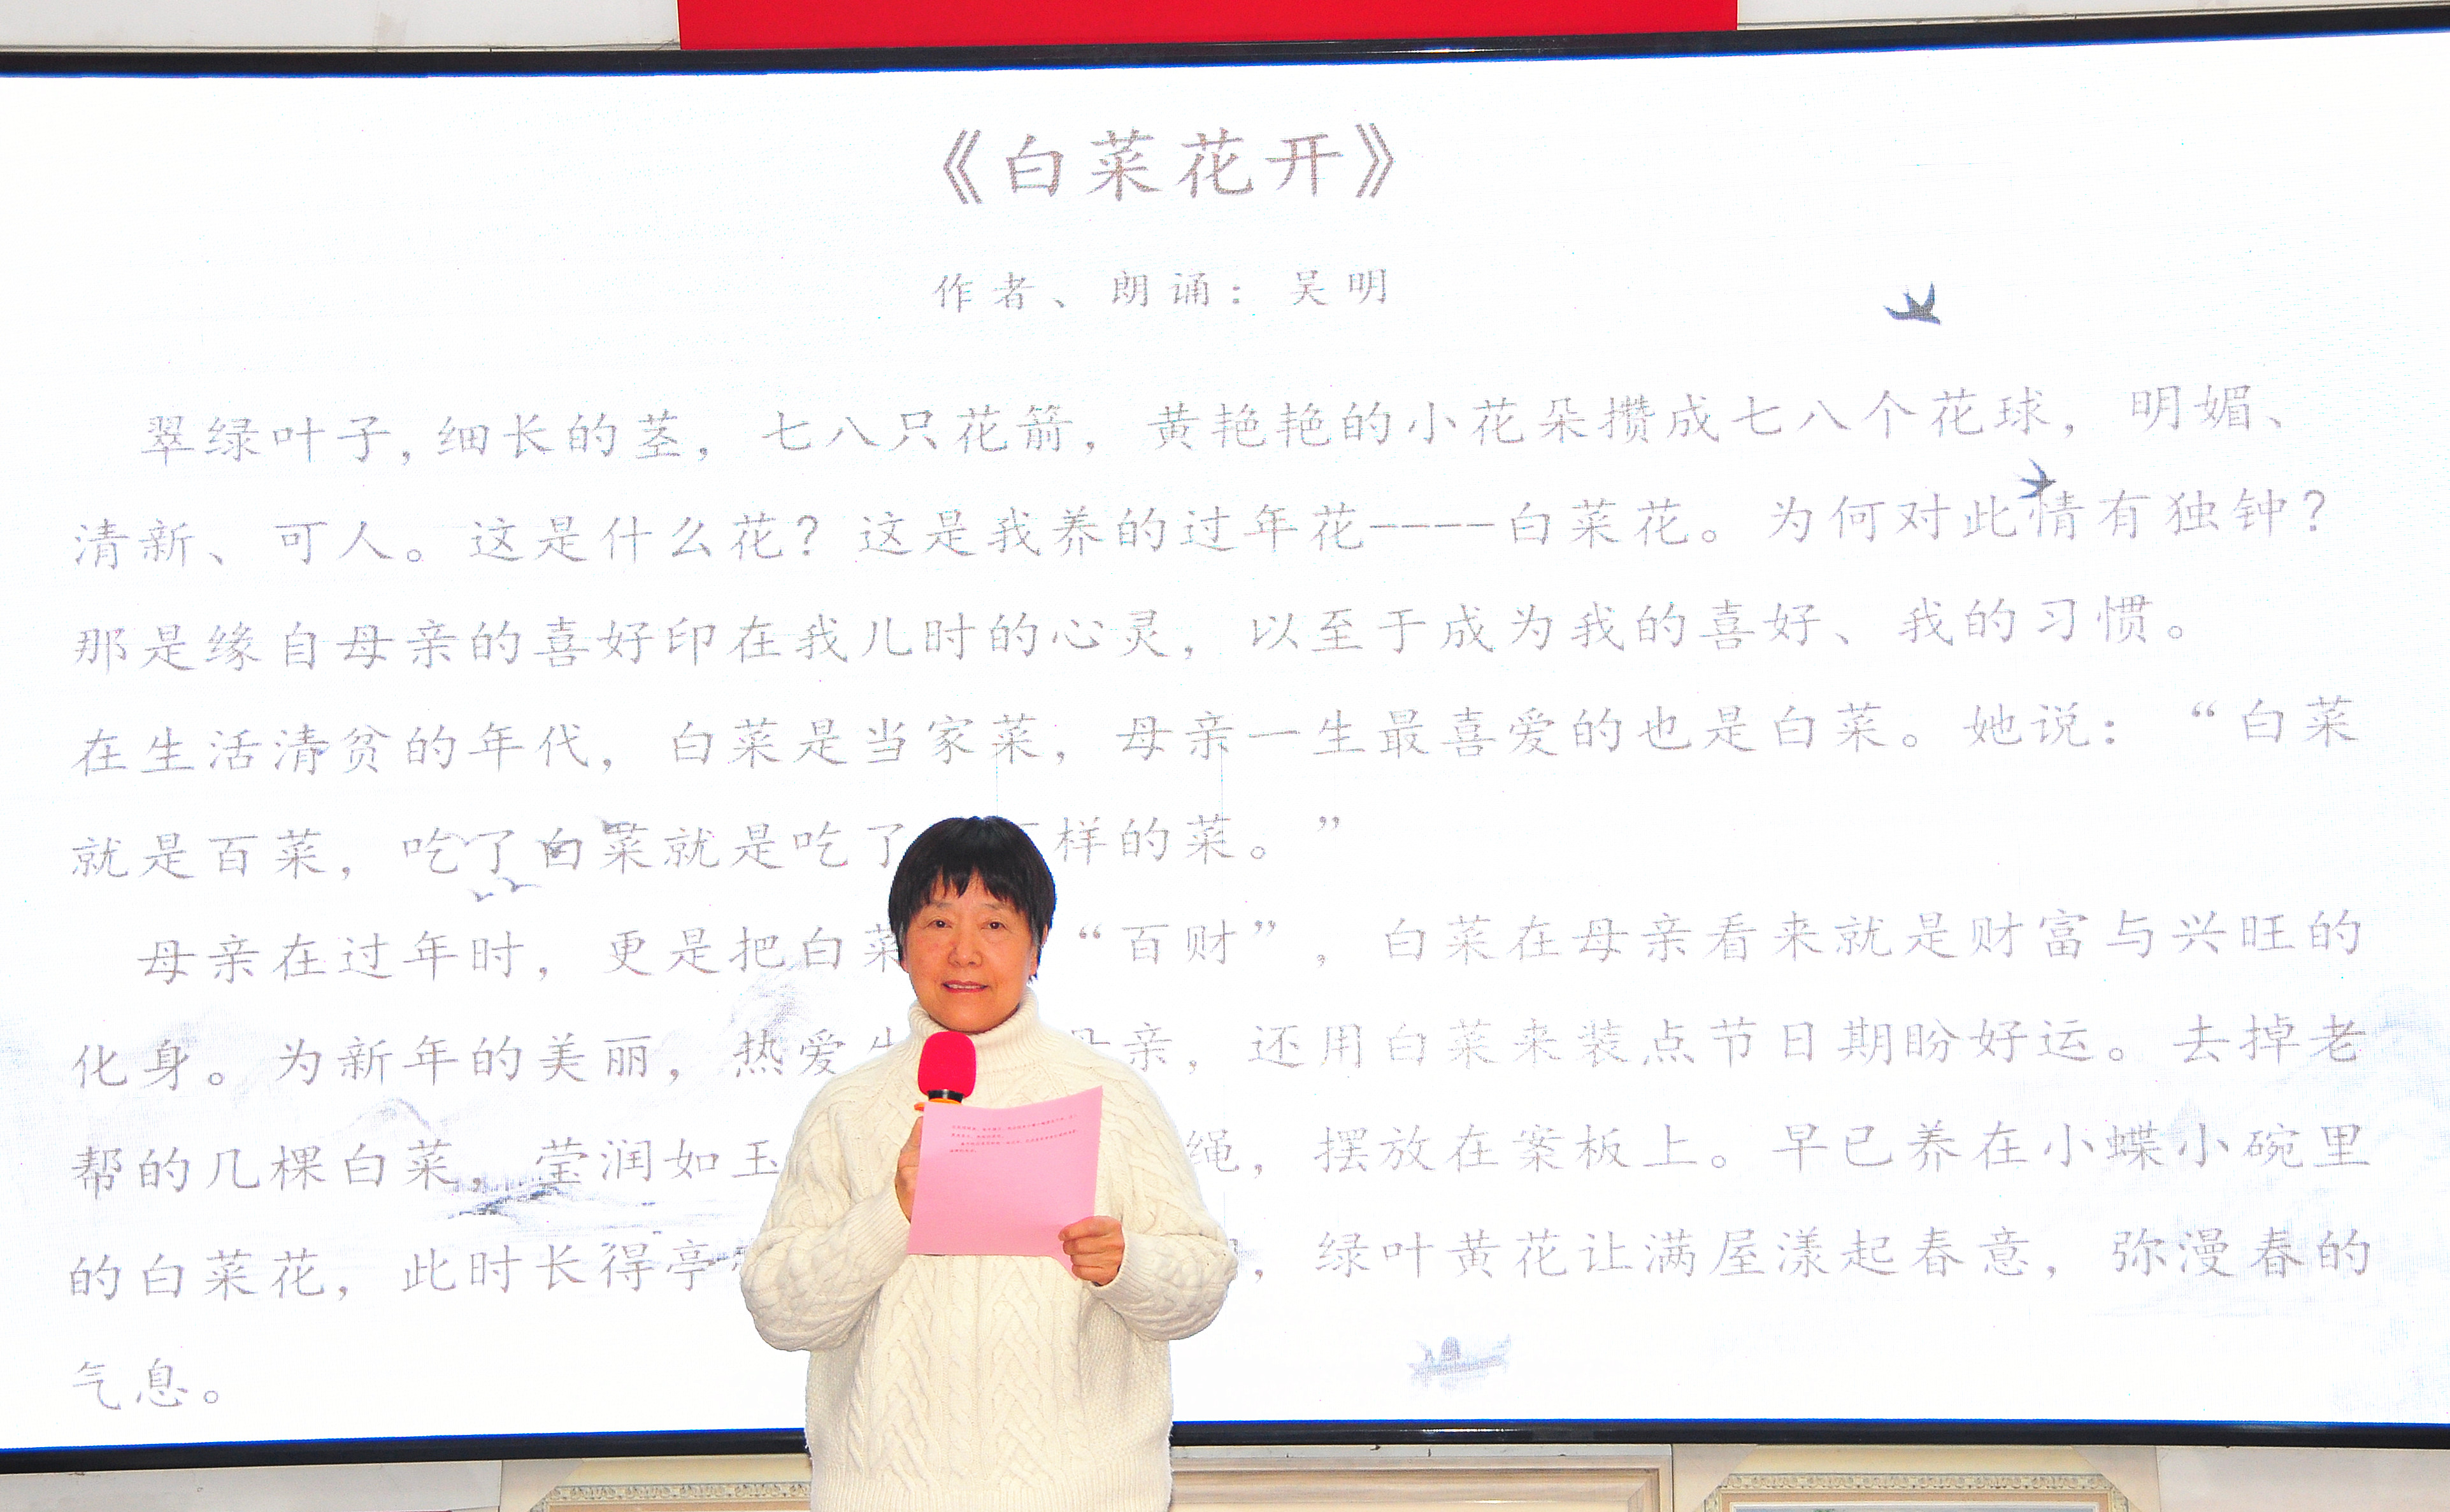 《白菜花开》
作者、朗诵：吴明
翠绿叶子，细长的茎，七八只花箭，黄艳艳的小花朵攒成七八个花球，明媚、
清新、可人。这是什么花？这是我养的过年花----白菜花。为何对此情有独钟？
那是缘自母亲的喜好印在我儿时的心灵，以至于成为我的喜好、我的习惯。
在生活清贫的年代，白菜是当家菜，母亲一生最喜爱的也是白菜。她说：“白菜
就是百菜，吃了白菜就是吃了 样的菜。”
母亲在过年时，更是把白菜 “百财”，白菜在母亲看来就是财富与兴旺的
化身。为新年的美丽，热爱 亲，还用白菜来装点节日期盼好运。去掉老
帮的几棵白菜，莹润如玉 绳，摆放在案板上。早已养在小蝶小碗里
的白菜花，此时长得亭 ，绿叶黄花让满屋漾起春意，弥漫春的
气息。